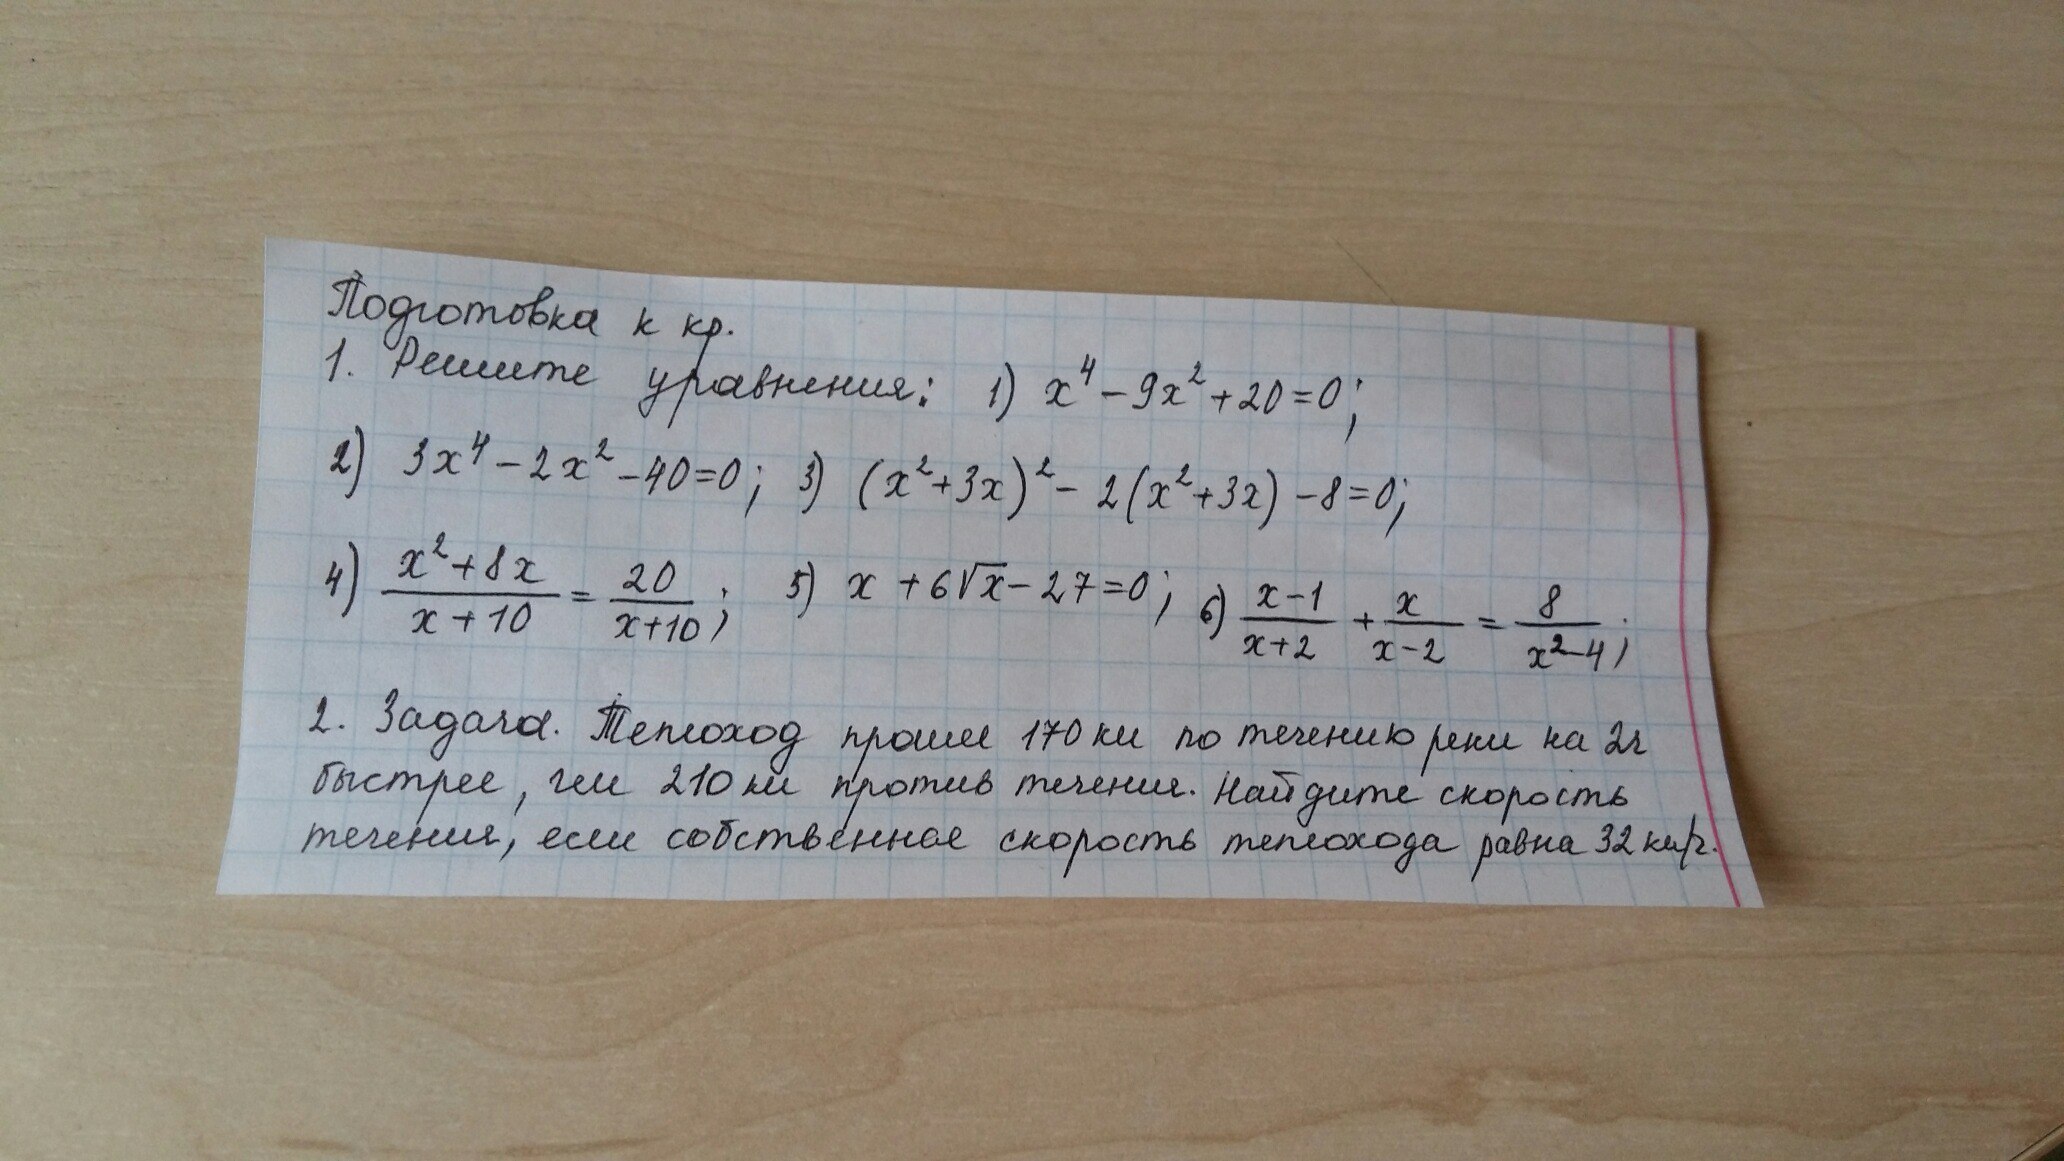 Подготовка к кр.
1. Решите уравнения: 1) x⁴ - 9x² + 20 = 0;
2) 3x⁴ - 2x² - 40 = 0; 3) (x² + 3x)² - 2(x² + 3x) - 8 = 0;
4) (x² + 8x)/(x + 10) = 20/(x + 10); 5) x + 6√x - 27 = 0; 6) (x - 1)/(x + 2) + x/(x - 2) = 8/(x² - 4);
2. Задача. Теплоход прошел 170 км по течению реки на 2ч
быстрее, чем 210 км против течения. Найдите скорость
течения, если собственная скорость теплохода равна 32 км/ч.